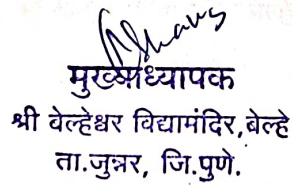 मुख्याध्यापक
श्री वेल्हेश्वर विद्यामंदिर,बेल्हे
ता.जुन्नर, जि.पुणे.